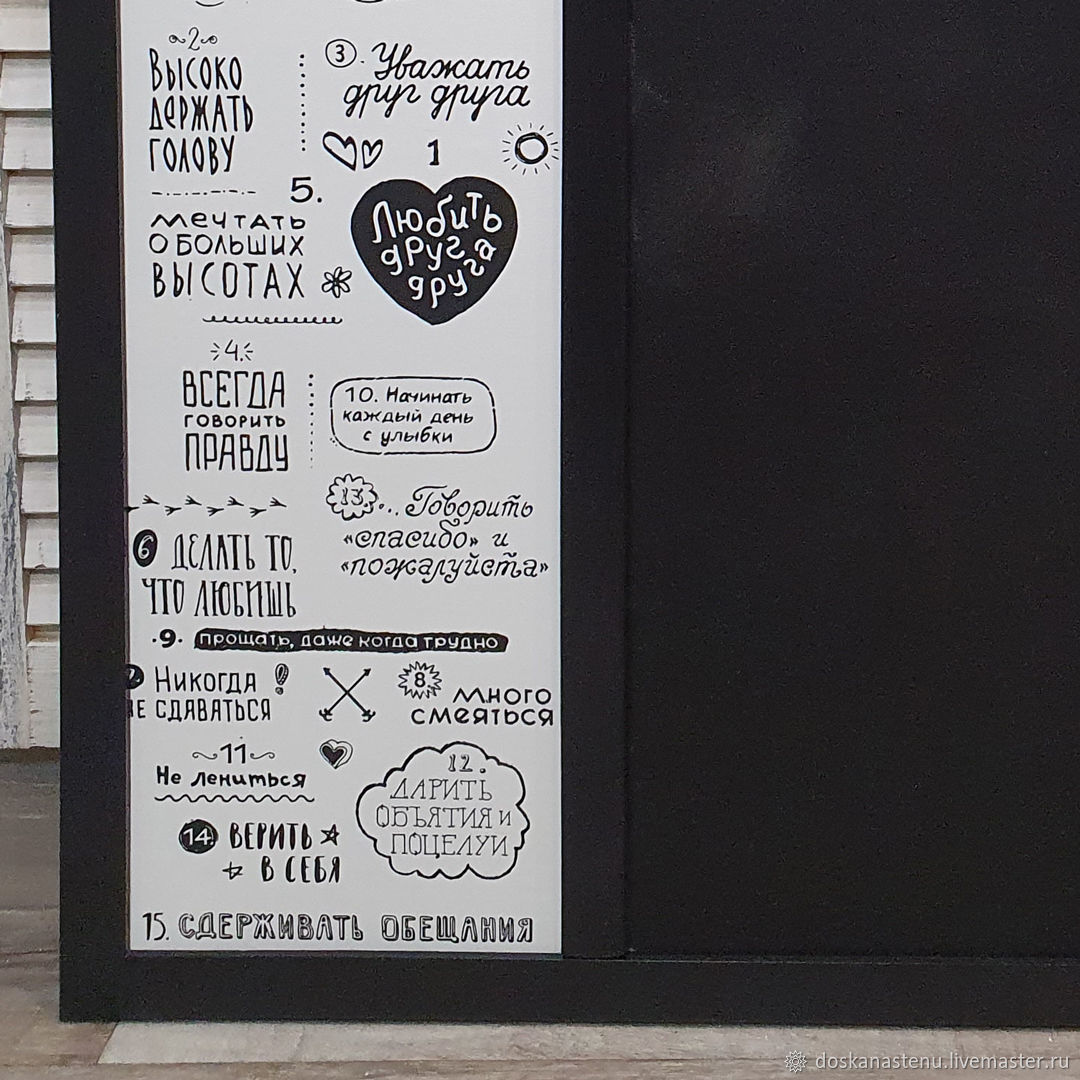 2
Высоко
держать
голову
3. Уважать
друг друга
1
Любить
друг
друга
5.
мечтать
о больших
высотах
4.
Всегда
говорить
правду
10. Начинать
каждый день
с улыбки
13... Говорить
«спасибо» и
«пожалуйста»
6 Делать то,
что любишь
9. прощать, даже когда трудно
Никогда
не сдаваться
8
много
смеяться
11
Не лениться
12.
Дарить
объятия и
поцелуи
14 Верить
в себя
15. Сдерживать обещания
doskanastenu.livemaster.ru